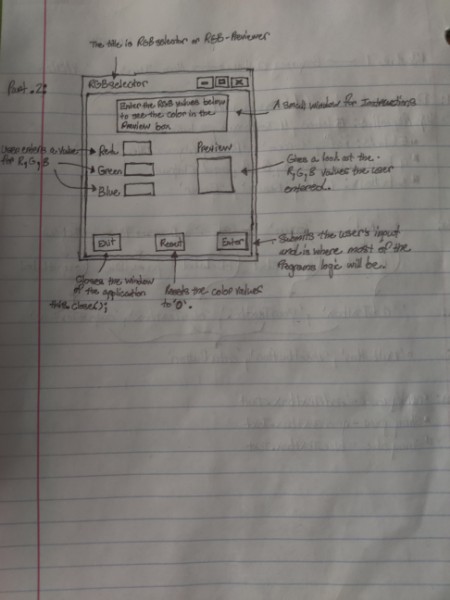 The title is RGBselector or RGB-Previewer
Part. 2:
RGBselector
Enter the RGB values below
to see the color in the
Preview box
A small window for Instructions
User enters a value
for R,G,B
Red
Green
Blue
Preview
Gives a look at the
R,G,B values the user
entered.
Exit
Reset
Enter
Submits the user's input
and is where most of the
Programs logic will be.
Closes the window
of the application
this.close();
Resets the color values
to "0".